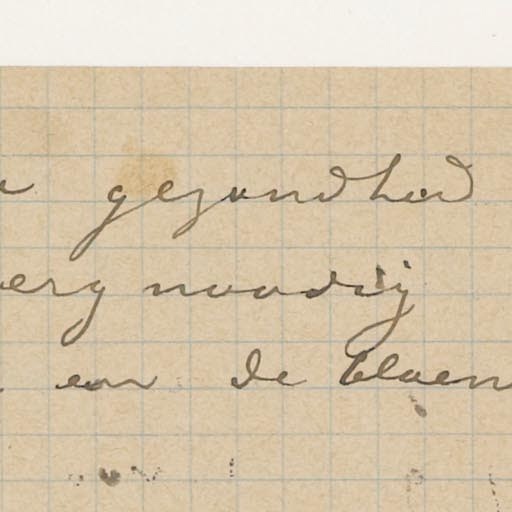 gezondheid
erg noodig
de bloem